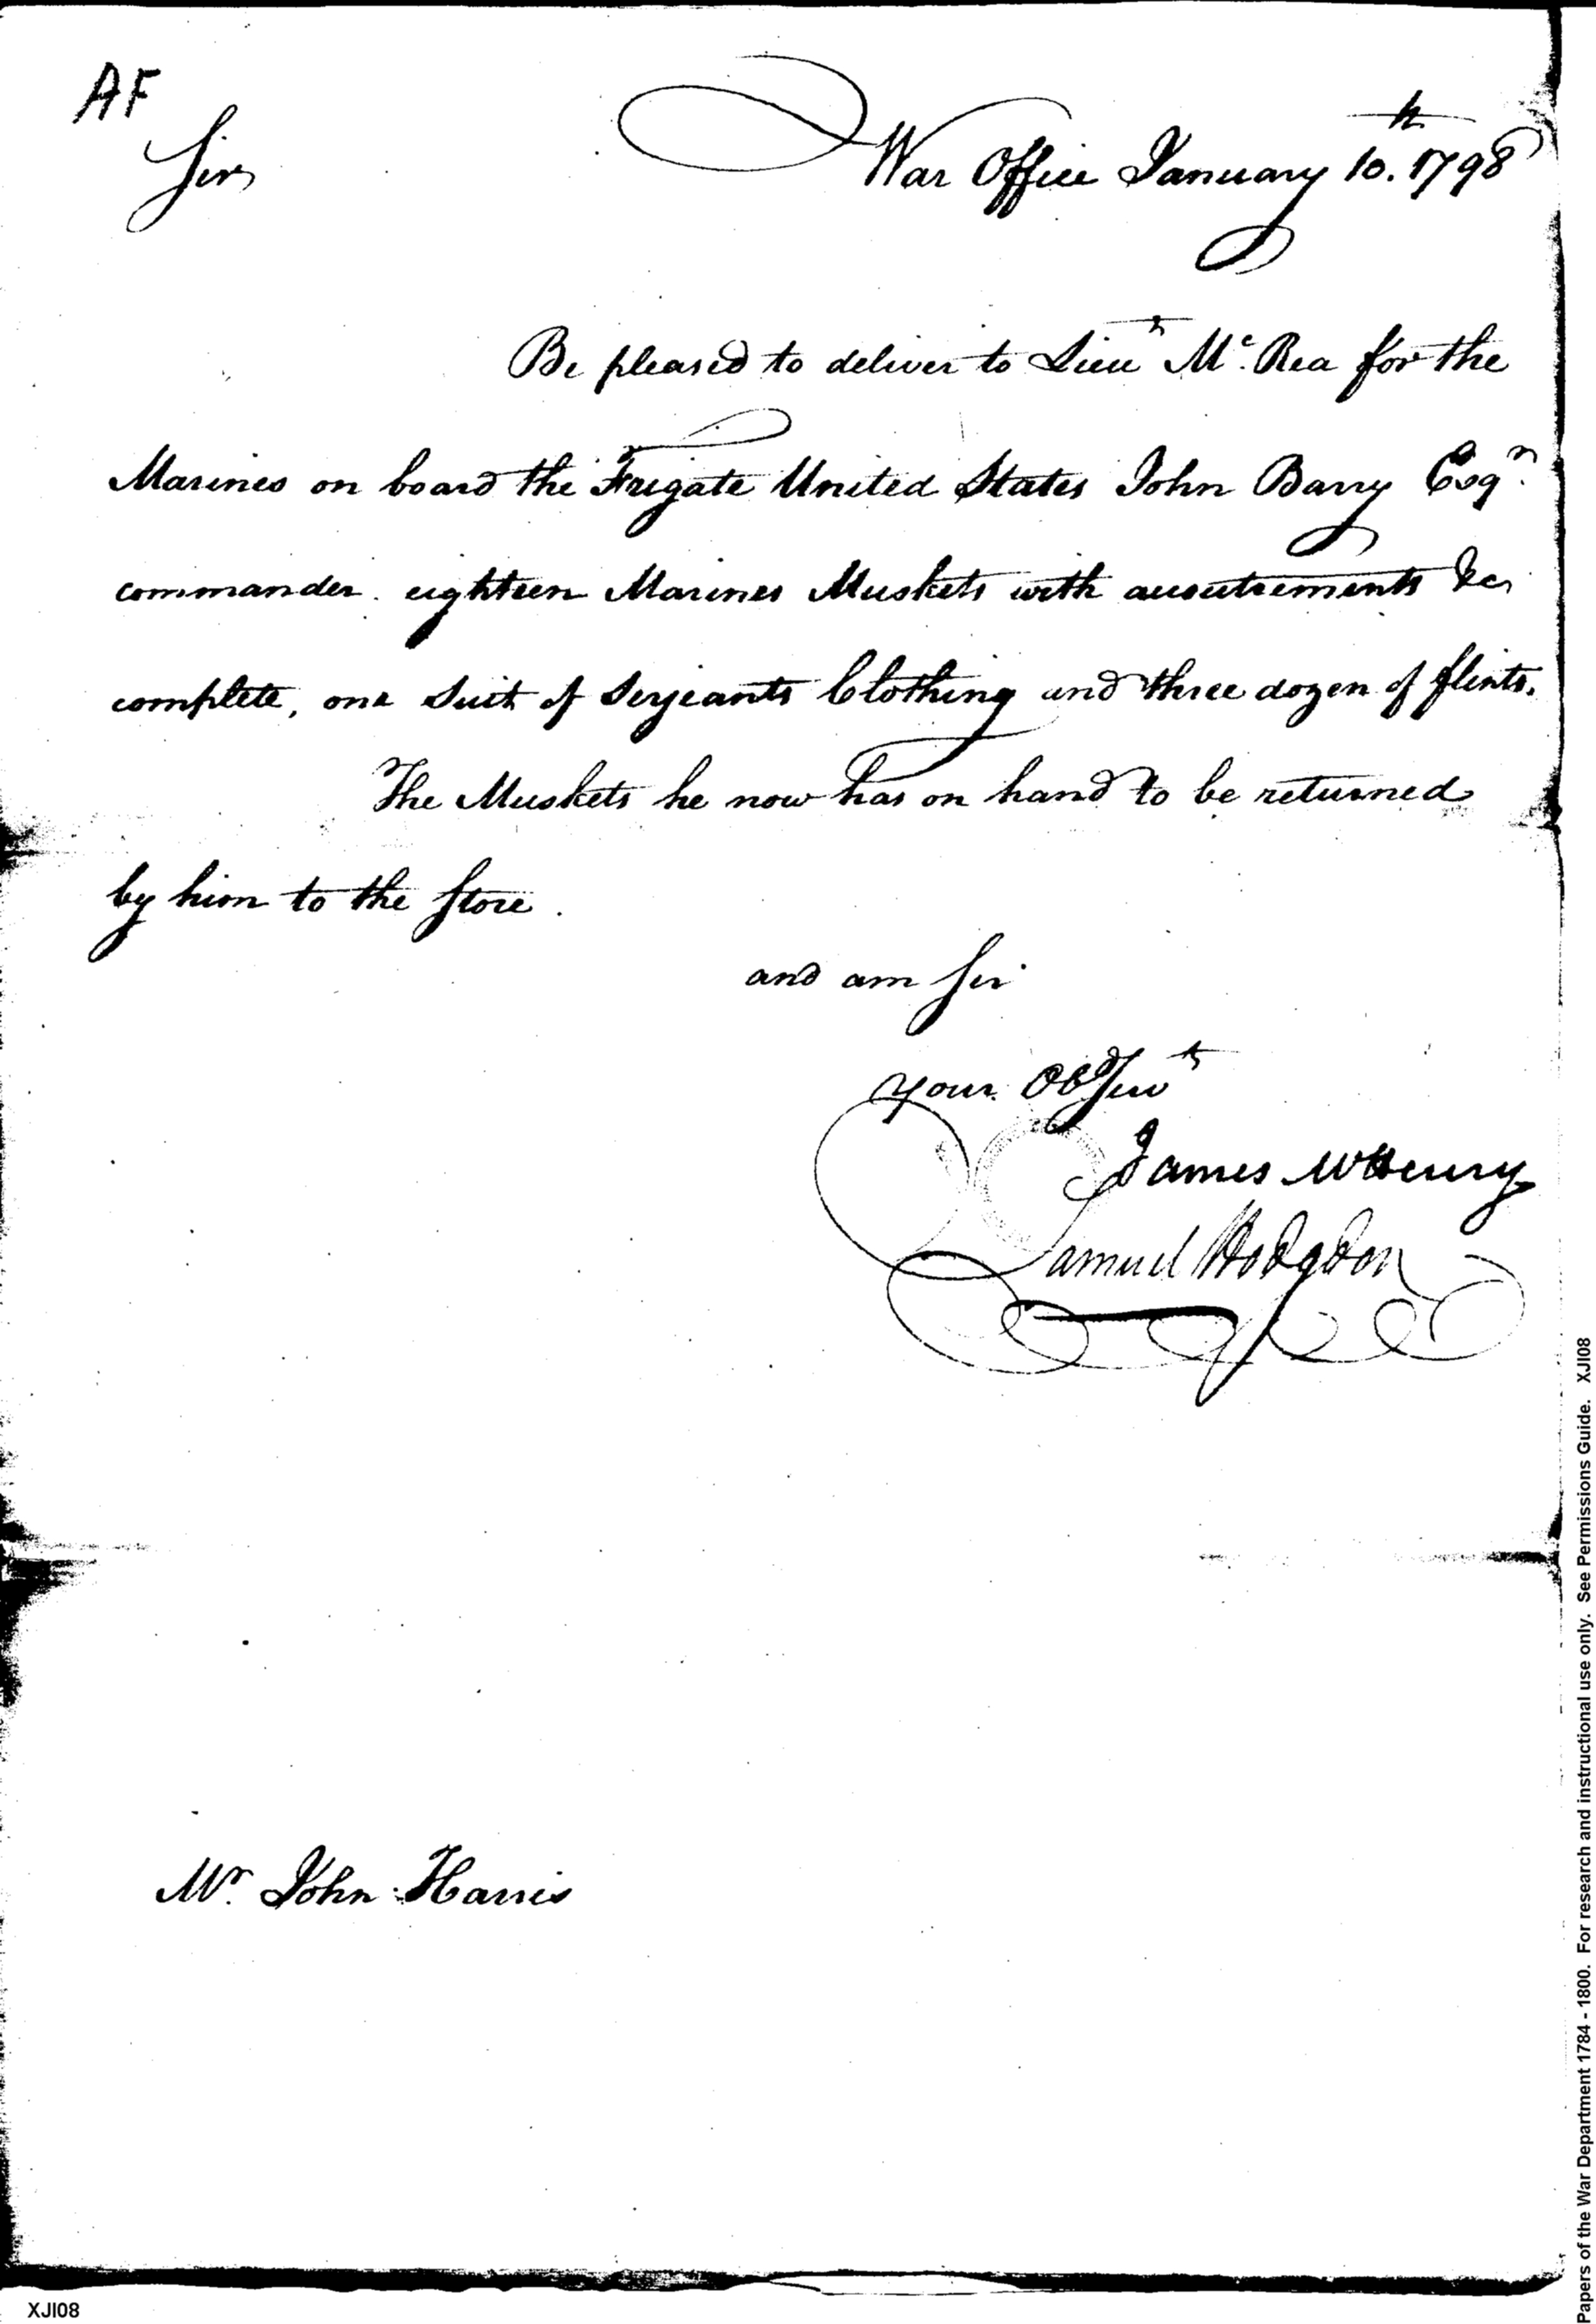 AF
Sir
War Office January 10.th 1798
Be pleased to deliver to Lieut Mc. Rea for the
Marines on board the Frigate United States John Barry Esqr.
commander. eighteen Marines Muskets with accoutrements &c
complete, one Suit of Serjeants Clothing and three dozen of flints.
The Muskets he now has on hand to be returned
by him to the Store.
and am Sir
your Ob Servt
James McHenry
Samuel Hodgdon
Mr. John Harris
XJI08
Papers of the War Department 1784 - 1800. For research and instructional use only. See Permissions Guide. XJI08